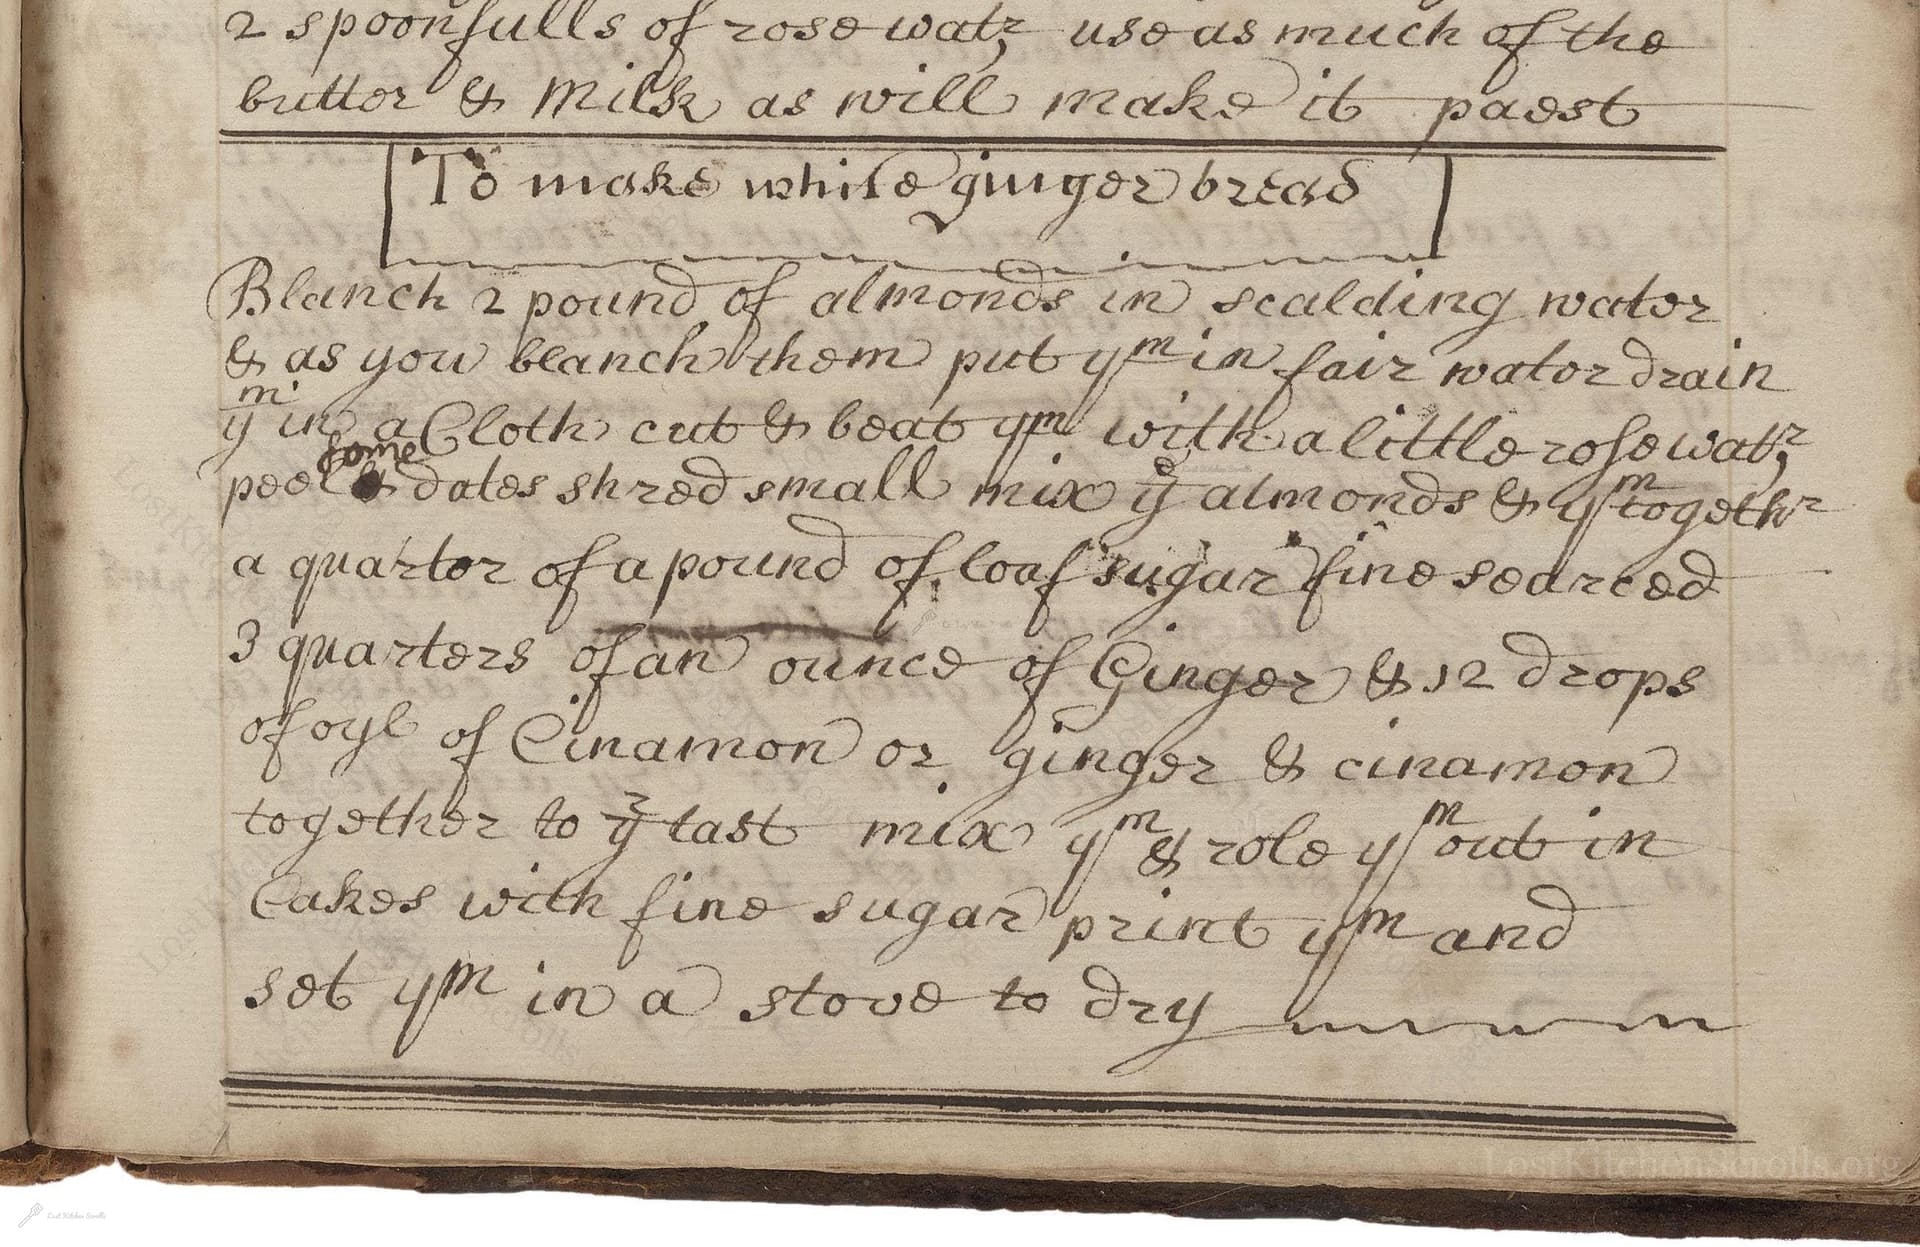 2 spoonfulls of rose watr use as much of the
butter & Milk as will make it paest
To make white ginger bread
Blanch 2 pound of almonds in scalding water
& as you blanch them put ym in fair water drain
ym in a Cloth cut & beat ym with a little rose watr
peel some dates shred small mix ye almonds & ym togethr
a quarter of a pound of loaf sugar fine searced
3 quarters of an ounce of Ginger & 12 drops
of oyl of Cinamon or ginger & cinamon
together to yr tast mix ym & role ym out in
Cakes with fine sugar print ym and
set ym in a stove to dry
LostKitchenScrolls.org
Lost Kitchen Scrolls